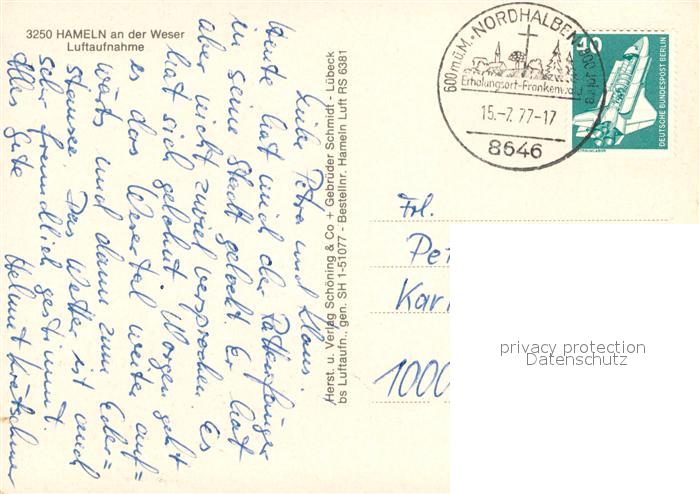 3250 HAMELN an der Weser
Luftaufnahme
Liebe Petra und Klaus!
Heute hat mich der Rattenfänger
in seine Stadt gelockt. Er hat
aber nicht zuviel versprochen. Es
hat sich gelohnt. Morgen geht
es das Wesertal weiter auf=
wärts und dann zum Eder=
stausee. Das Wetter ist auch
sehr freundlich gestimmt.
Alles Gute Helmut
Herst. u. Verlag Schöning & Co + Gebrüder Schmidt - Lübeck
bs Luftaufn., gen. SH 1-51077 - Bestellnr. Hameln Luft RS 6381
600 m ü.M. · NORDHALBEN
Erholungsort-Frankenwald
15.-7.77-17
8646
40
DEUTSCHE BUNDESPOST BERLIN
Frl.
Pet
Kar
1000
privacy protection
Datenschutz